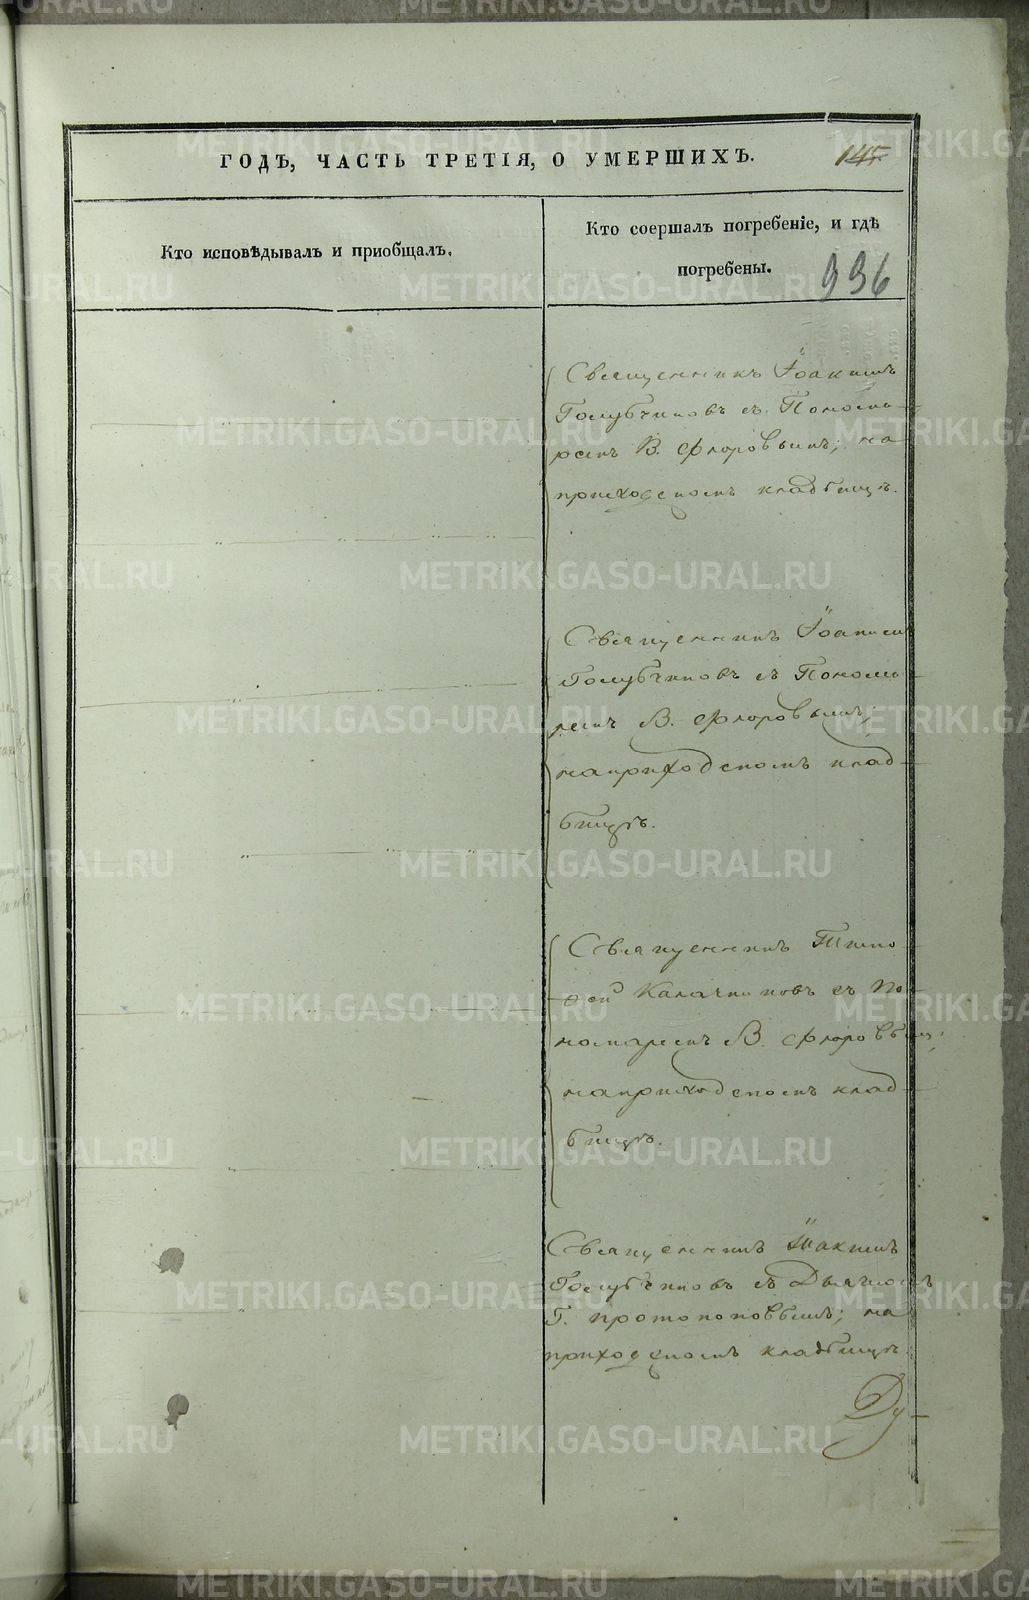 ГОДЪ, ЧАСТЬ ТРЕТІЯ, О УМЕРШИХЪ.
145
Кто исповѣдывалъ и приобщалъ.
Кто соершалъ погребеніе, и гдѣ
погребены.
996
Священникъ Іоакимъ
Голубчиковъ съ Понома-
ремъ В. Флоровымъ; на
приходскомъ кладбищѣ.
Священникъ Іоакимъ
Голубчиковъ съ Понома-
ремъ В. Флоровымъ;
на приходскомъ клад-
бищѣ.
Священникъ Тимо-
фей Калачниковъ съ По-
номаремъ В. Флоровымъ;
на приходскомъ клад-
бищѣ.
Священникъ Іоакимъ
Голубчиковъ съ Дьячкомъ
Г. Протопоповымъ; на
приходскомъ кладбищѣ.
Ду-
METRIKI.GASO-URAL.RU